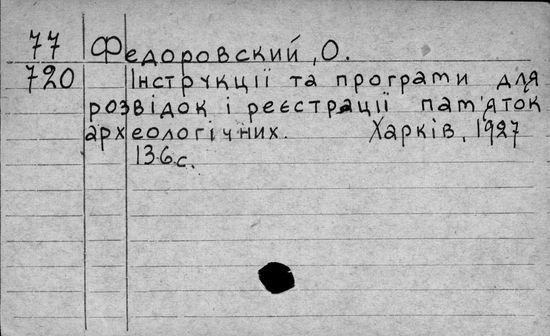 77 Федоровский, О.
720 Інструкції та програми для
розвідок і реєстрації пам'яток
археологічних. Харків, 1927
136с.